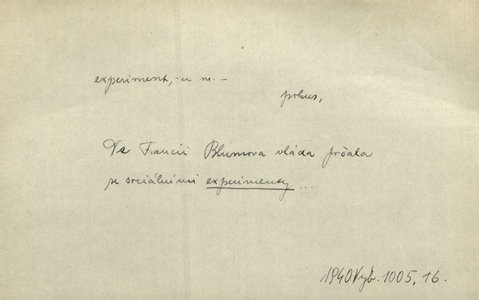 experiment, -u m. -
pokus,
Ve Francii Blumova vláda počala
se sociálními experimenty ...
1940 Vyb. 1005, 16.